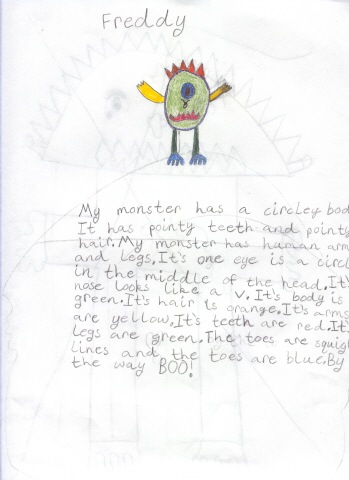 Freddy
My monster has a circley bod
It has pointy teeth and pointy
hair. My monster has human arm
and legs. It's one eye is a circl
in the middle of the head. It's
nose looks like a V. It's body is
green. It's hair is orange. It's arms
are yellow. It's teeth are red. It's
legs are green. The toes are squigl
lines and the toes are blue. By
the way BOO!